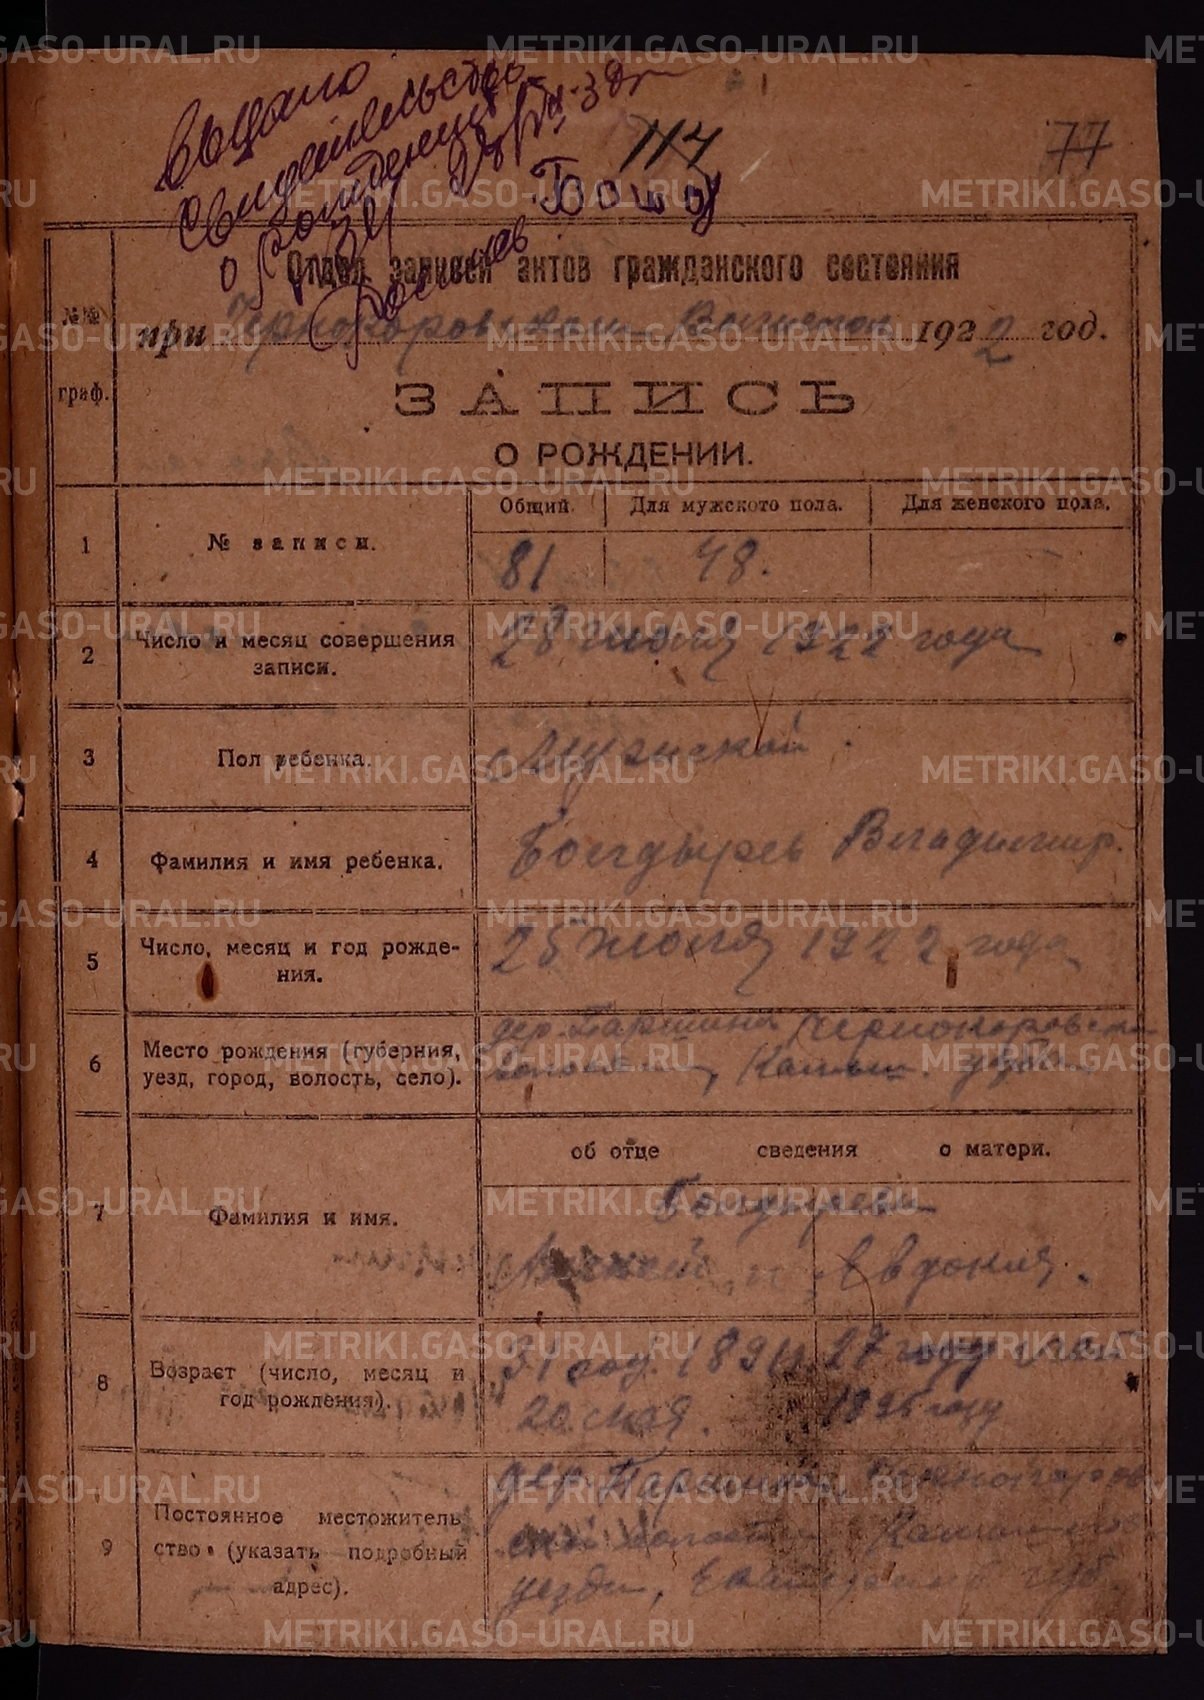 Выдано
свидетельство
о рождении
114
77
Отдел записей актов гражданского состояния
№№ граф.
при Чернокоров 1922 год.
ЗАПИСЬ
О РОЖДЕНИИ.
Общий. Для мужского пола. Для женского пола.
1 № записи. 81 48.
2 Число и месяц совершения записи. 28 июня 1922 года
3 Пол ребенка. Мужской.
4 Фамилия и имя ребенка. Болдырев Владимир.
5 Число, месяц и год рождения. 25 июня 1922 года
6 Место рождения (губерния, уезд, город, волость, село). дер. Паршина Чернокоровск
об отце сведения о матери.
7 Фамилия и имя. Болдыревы
и Евдокия.
8 Возраст (число, месяц и год рождения). 31 год. 1891 27 году
20 мая. 1895 году
9 Постоянное местожительство (указать подробный адрес). дер. Паршина, Чернокоров
ской волости
уезда, губ.
METRIKI.GASO-URAL.RU